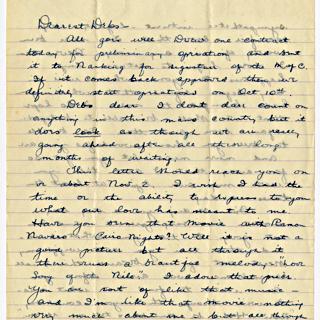 Dearest Debs-
All goes well. Drew one contract
today for preliminary operation and sent
it to Nanking for signature of the M of C.
If it comes back approved then we
definitely start operations on Oct 10th.
Debs dear I don't dare count on
anything in this mad country but it
does look as though we are really
going ahead after all these long
months of waiting.
This letter should reach you on
or about Nov 2. I wish I had the
time or the ability to express to you
what our love has meant to me.
Have you seen that Movie with Ramon
Navarro - Cairo Nights? Well it is not a
good picture but all through it
there runs a beautiful melody, "Love
Song of the Nile". I adore that piece
You are sort of like that music -
and I'm like that movie - nothing
very much about me is but all through